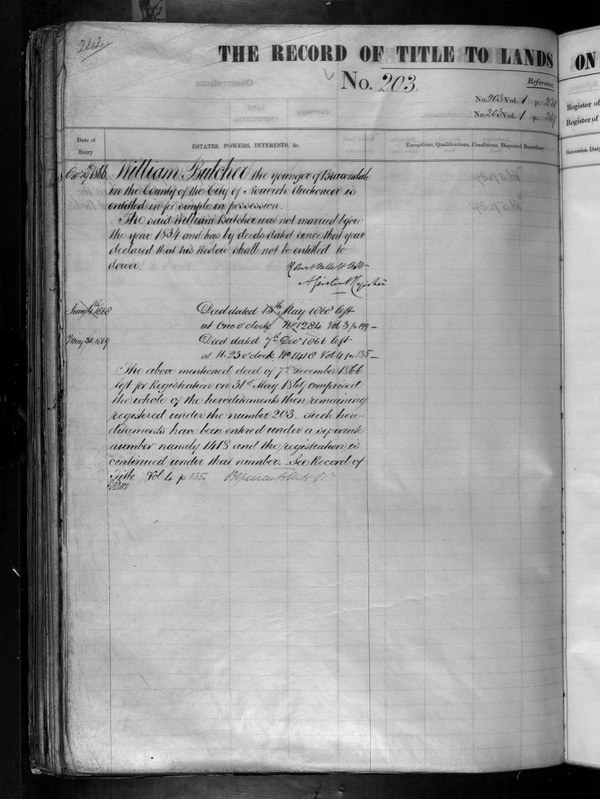 242
THE RECORD OF TITLE TO LANDS
ON
No. 203.
Reference.
No. 203 Vol. 1 p. 240
No. 203 Vol. 1 p. 249
Register of
Register of
Date of Entry
ESTATES, POWERS, INTERESTS, &c
Exceptions, Qualifications, Conditions, Disputed Boundary
Succession Duty
1866 William Butcher the younger of Bracondale
in the County of the City of Norwich Auctioneer is
entitled in fee simple in possession.
The said William Butcher was not married before
the year 1834 and has by deeds dated since that year
declared that his widow shall not be entitled to
dower.
Assistant Registrar
1868 Deed dated 13th May 1868 left
at One o'clock No 1284 Vol 3 p 199 —
May 31 1869 Deed dated 7th Decr 1866 left
at 11.25 o'clock No 1418 Vol 4 p 135 —
The above mentioned deed of 7th December 1866
left for Registration on 31st May 1869 comprised
the whole of the hereditaments then remaining
registered under the number 203. Such here-
ditaments have been entered under a separate
number namely 1418 and the registration is
continued under that number. See Record of
Title Vol 4 p 135.